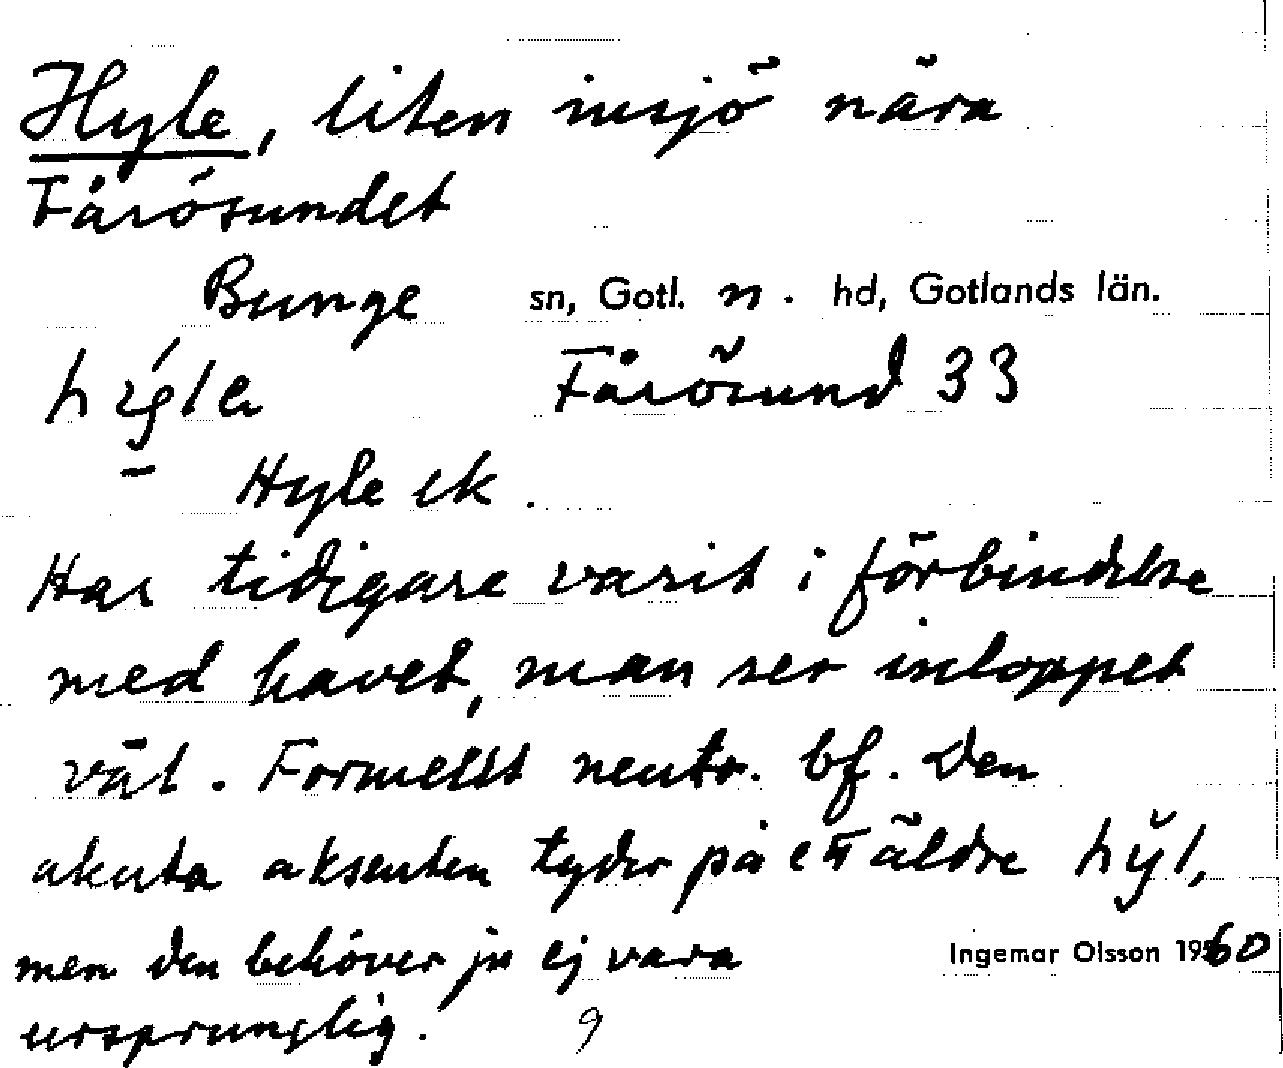 Hyle, liten insjö nära
Fårösundet
Bunge sn, Gotl. n. hd, Gotlands län.
Fårösund 33
Hyle ek.
Har tidigare varit i förbindelse
med havet, man ser inloppet
väl. Formellt neutr. bf. Den
akuta aksenten tyder på ett äldre hyl,
men den behöver ju ej vara
ursprunglig.
Ingemar Olsson 1960
9